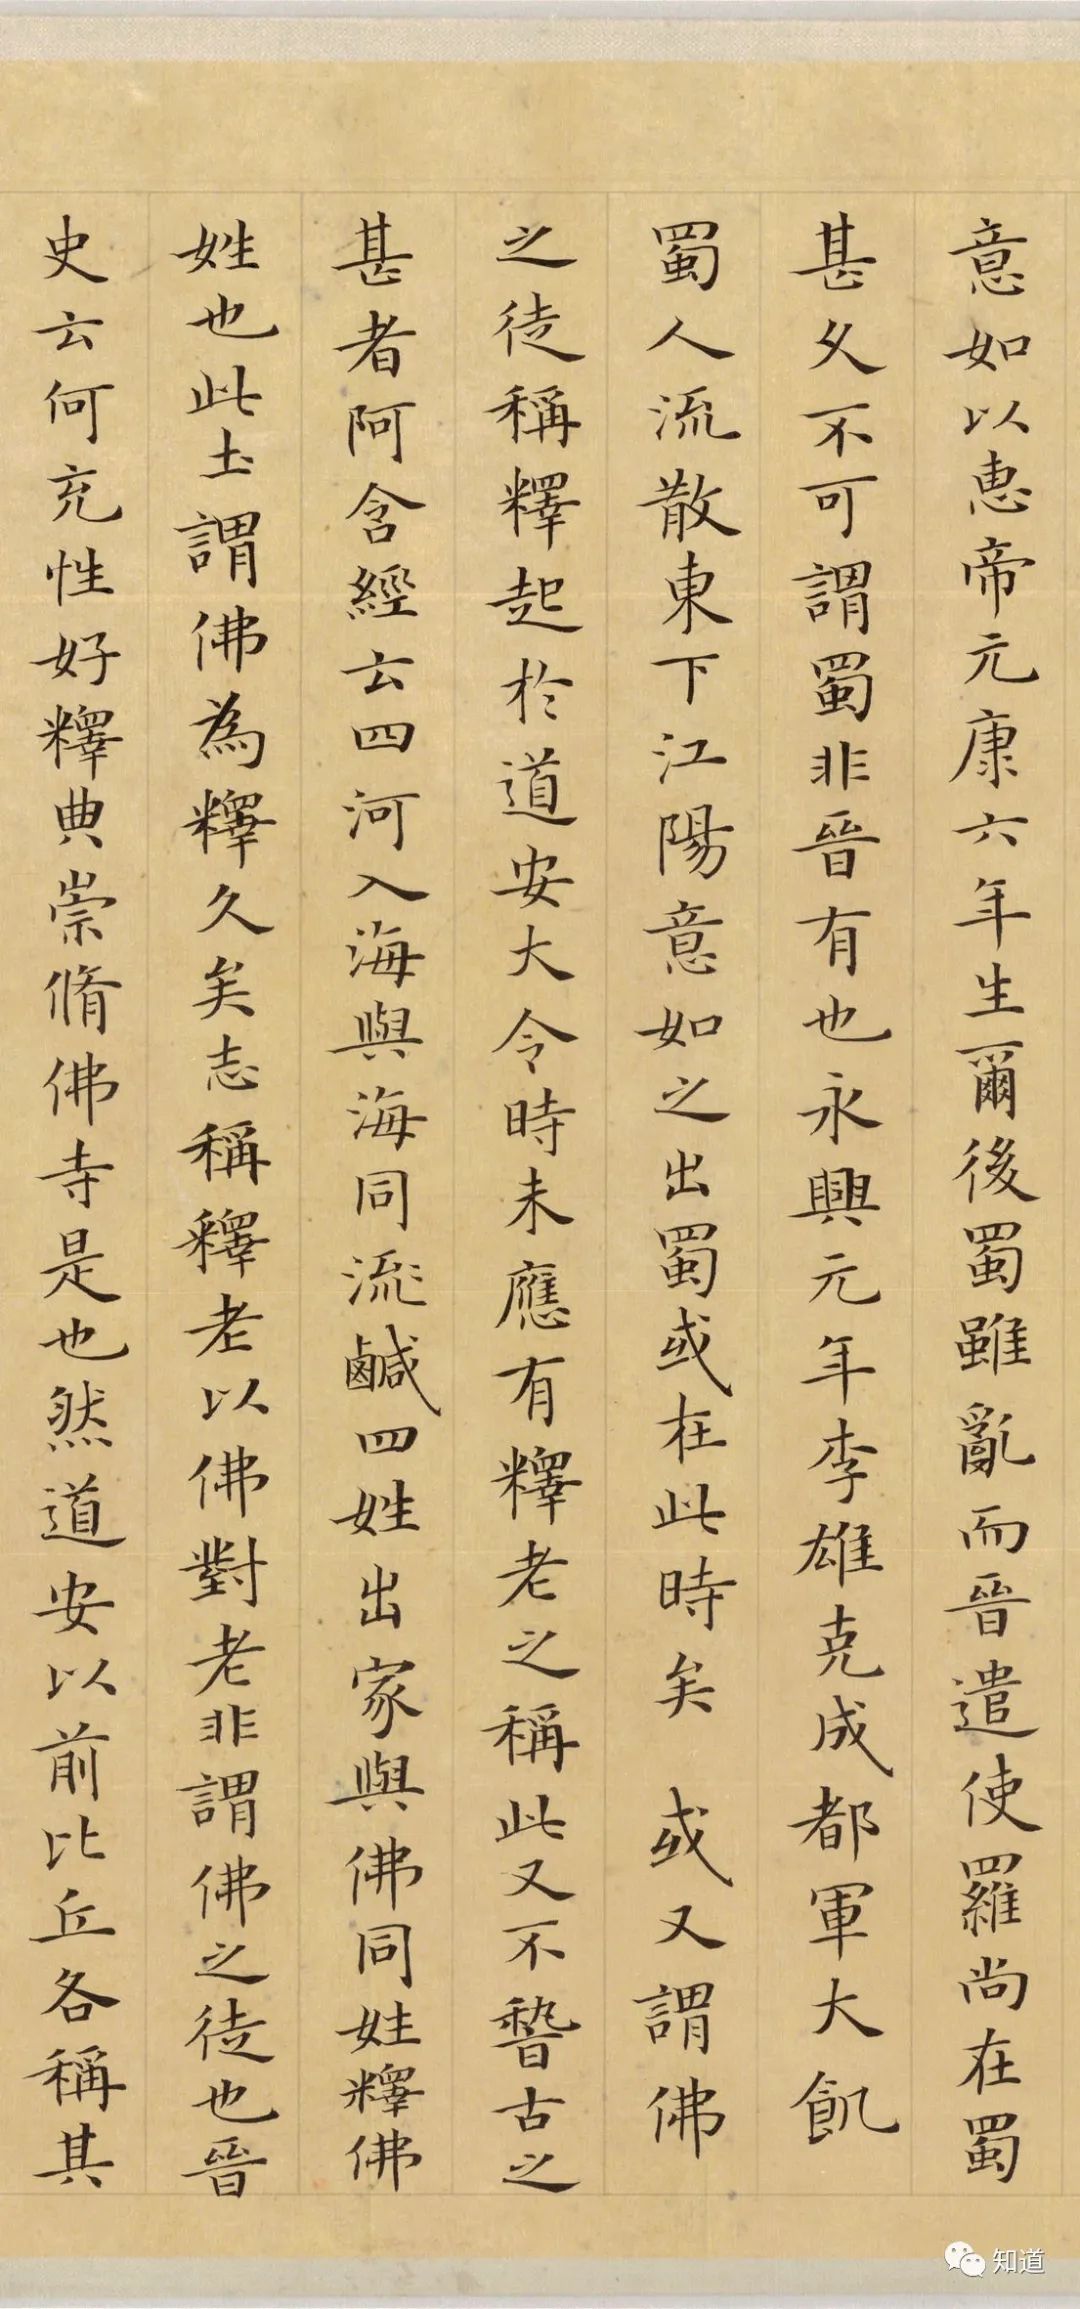 意如以惠帝元康六年生爾後蜀雖亂而晉遣使羅尚在蜀
甚久不可謂蜀非晉有也永興元年李雄克成都軍大飢
蜀人流散東下江陽意如之出蜀或在此時矣 或又謂佛
之徒稱釋起於道安大令時未應有釋老之稱此又不稽古之
甚者阿含經云四河入海與海同流鹹四姓出家與佛同姓釋佛
姓也此土謂佛為釋久矣志稱釋老以佛對老非謂佛之徒也晉
史云何充性好釋典崇脩佛寺是也然道安以前比丘各稱其
知道